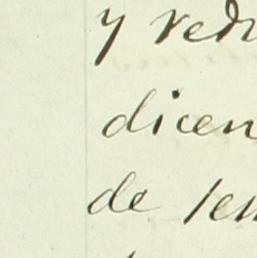 y redu
dicen
de Jen